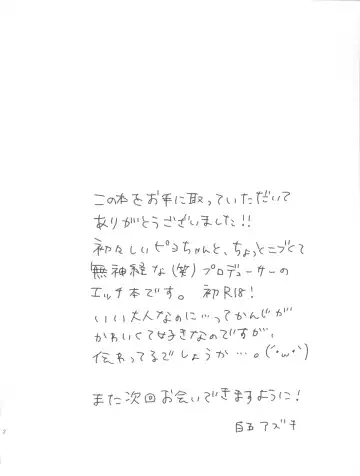 この本をお手に取っていただいて
ありがとうございました!!
初々しいピヨちゃんと、ちょっとニブくて
無神経な(笑)プロデューサーの
エッチ本です。初R18!
いい大人なのに…ってかんじが
かわいくて好きなのですが、
伝わってるでしょうか…。(´・ω・`)
また次回お会いできますように!